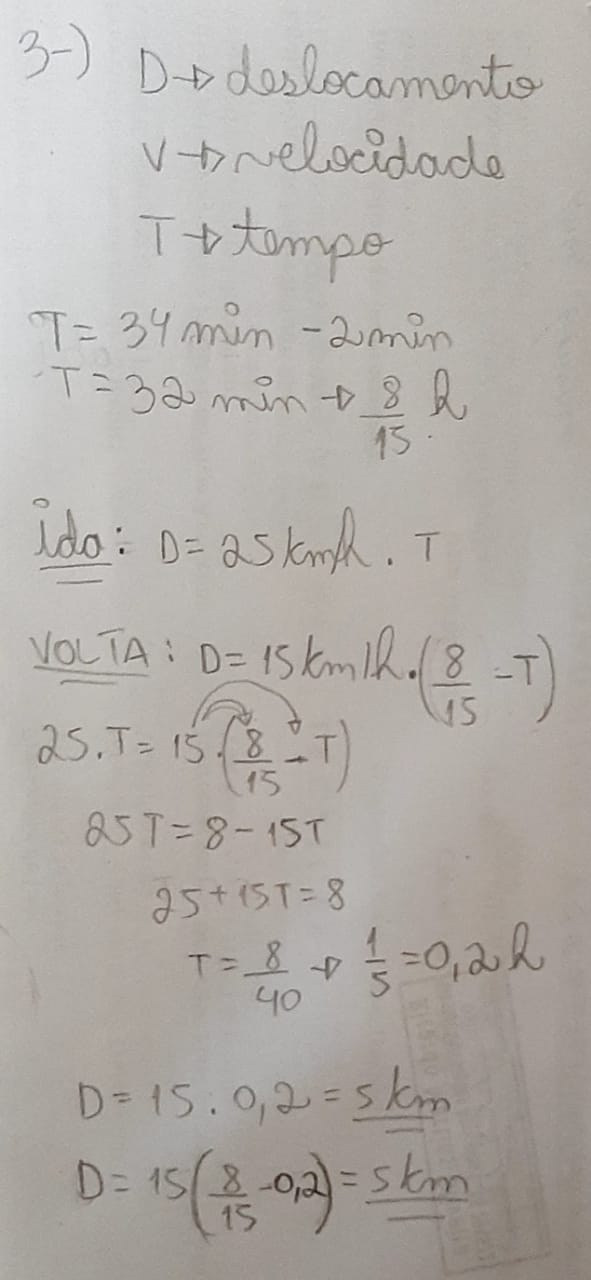 3-) D → deslocamento
V → velocidade
T → tempo
T = 34 min - 2 min
T = 32 min → 8/15 h.
ida: D = 25 km/h . T
VOLTA: D = 15 km/h . (8/15 - T)
25.T = 15.(8/15 - T)
25T = 8 - 15T
25 + 15T = 8
T = 8/40 → 1/5 = 0,2 h
D = 15 . 0,2 = 5 km
D = 15(8/15 - 0,2) = 5 km